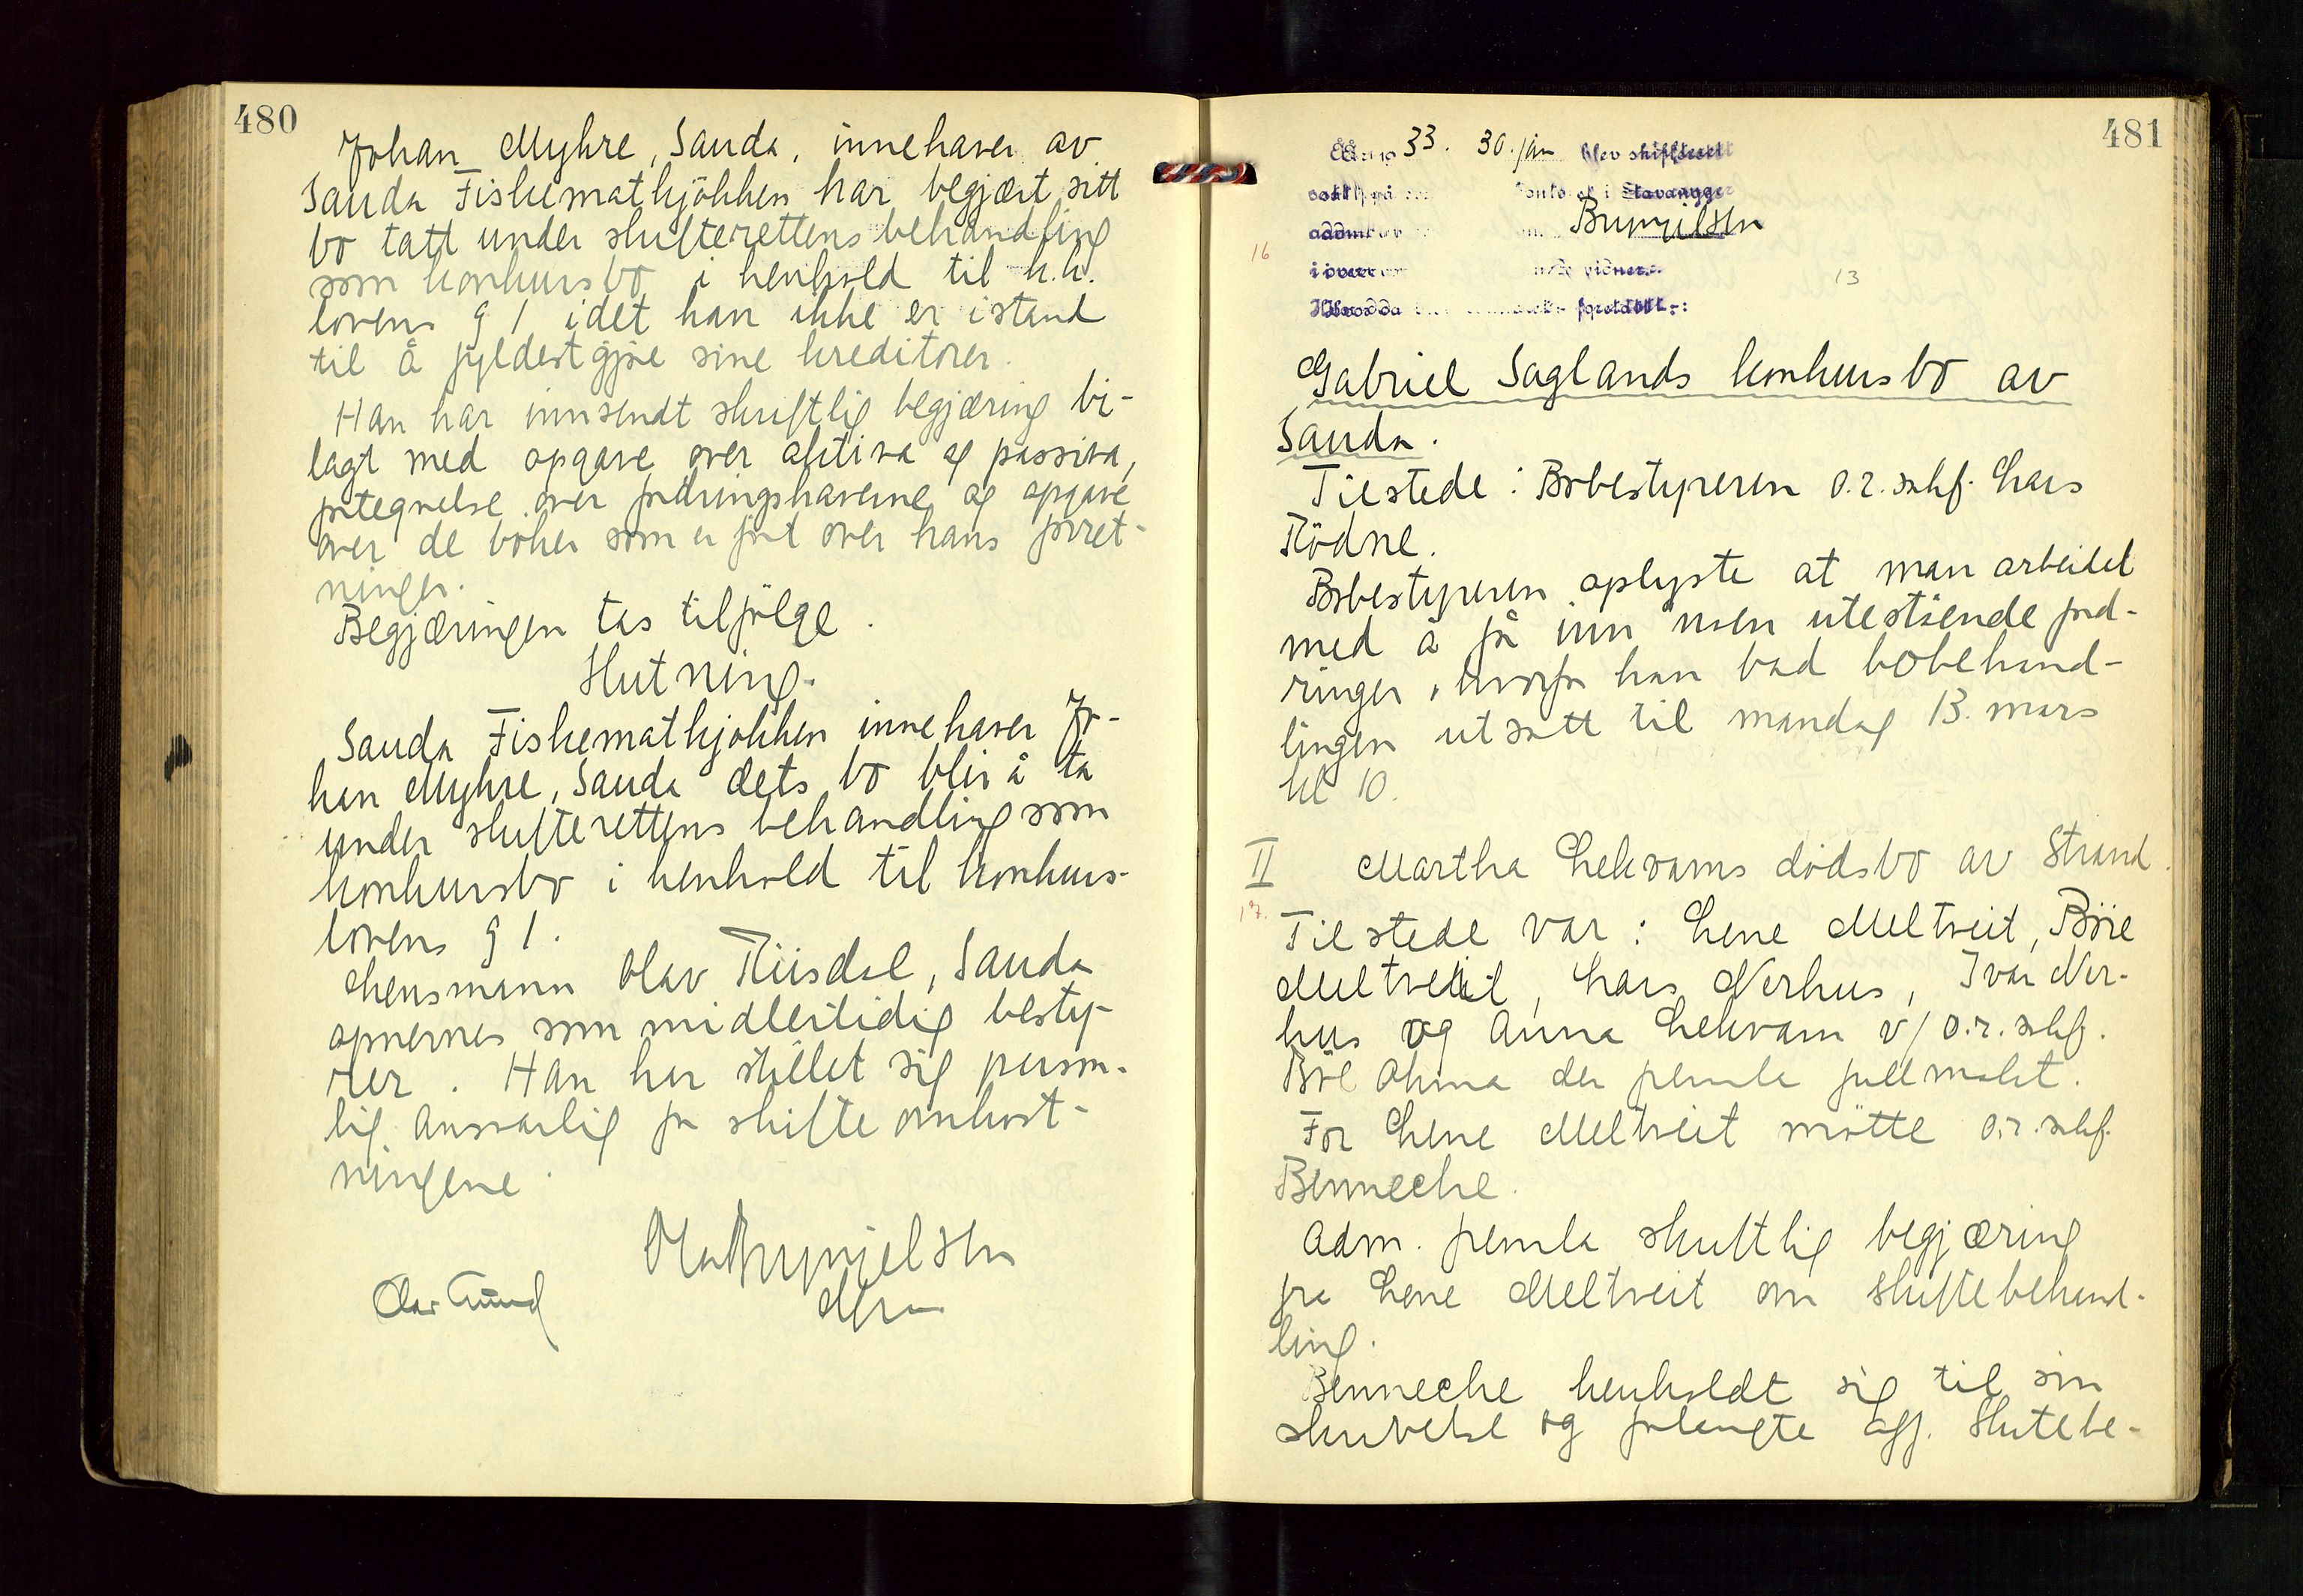 480
Johan Myhre, Sauda, innehaver av
Sauda Fiskematkjökken har begjært sitt
bo tatt under skifterettens behandling
som konkursbo i henhold til k.k.
lovens § 1 idet han ikke er istand
til å fyldestgjøre sine kreditorer.
Han har innsendt skriftlig begjæring bi-
lagt med opgave over aktiva og passiva,
fortegnelse over fordringshaverne og opgave
over de böker som er ført over hans forret-
ninger.
Begjæringen tas tilfölge.
Slutning.
Sauda Fiskematkjökken innehaver Jo-
han Myhre, Sauda dets bo blir å ta
under skifterettens behandling som
konkursbo i henhold til konkurs-
lovens § 1.
Lensmann Olav Tiisdal, Sauda
opnevnes som midlertidig besty-
rer. Han har stillet sig person-
lig ansvarlig for skifteomkost-
ningene.
Olav
481
33. 30. jan blev skifterett
i Stavanger
adm
16
13
foretatt:
Gabriel Saglands konkursbo av
Sauda.
Tilstede: Bobestyreren o.r.sakf. Lars
Rödne.
Bobestyreren oplyste at man arbeidet
med å få inn noen utestående ford-
ringer, hvorfor han bad bobehand-
lingen utsatt til mandag 13. mars
kl 10.
II Martha Lekvams dödsbo av Strand.
17.
Tilstede var: Lene Meltveit, Böie
Meltveit, Lars Nerhus, Ivar Ner-
hus og Anna Lekvam v/ o.r.sakf.
Böe Ohma der fremla fullmakt.
For Lene Meltveit mötte o.r.sakf.
Benneche.
Adm. fremla skriftlig begjæring
fra Lene Meltveit om skiftebehand-
ling.
Benneche henholdt sig til sin
skrivelse og forlangte off. skiftebe-